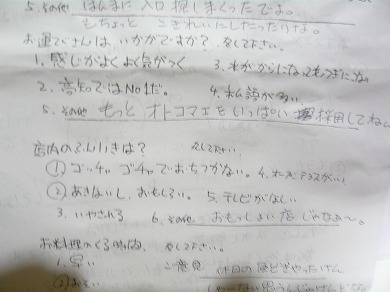 5. その他 ほんまに 入口 探しまくったでよ。
もちょっと こぎれいにしたったりな。
お運びさんは、いかがですか? 〇をして下さい。
1. 感じがよくよく気がつく 3. 水がからになってもつぎにこない
2. 高知ではNo1だ。 4. 私語が多い
5. その他 もっと オトコマエを いっぱい 採用してねん
店内のふんいきは? 〇をして下さい
① ゴッチャ ゴチャで おちつかない。 4.
② あきないし、おもしろい。 5. テレビがなしい
3. いやされる 6. その他 おもっしょい店じゃなあ〜。
お料理のくる時間、〇をして下さい。
1. 早い ご意見
② おそい